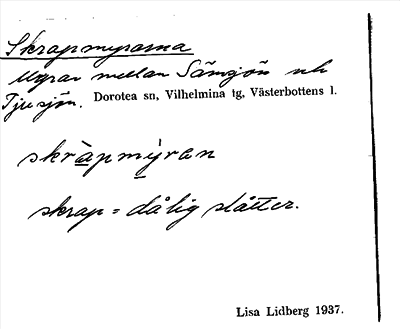 Skrapmyrarna
Myrar mellan Sämsjön och
Tjusjön. Dorotea sn, Vilhelmina tg, Västerbottens l.
skràpmýran
skrap = dålig slåtter.
Lisa Lidberg 1937.